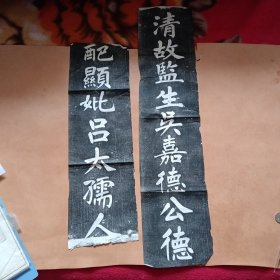 清故監生吳嘉德公德
配顯妣呂太孺人